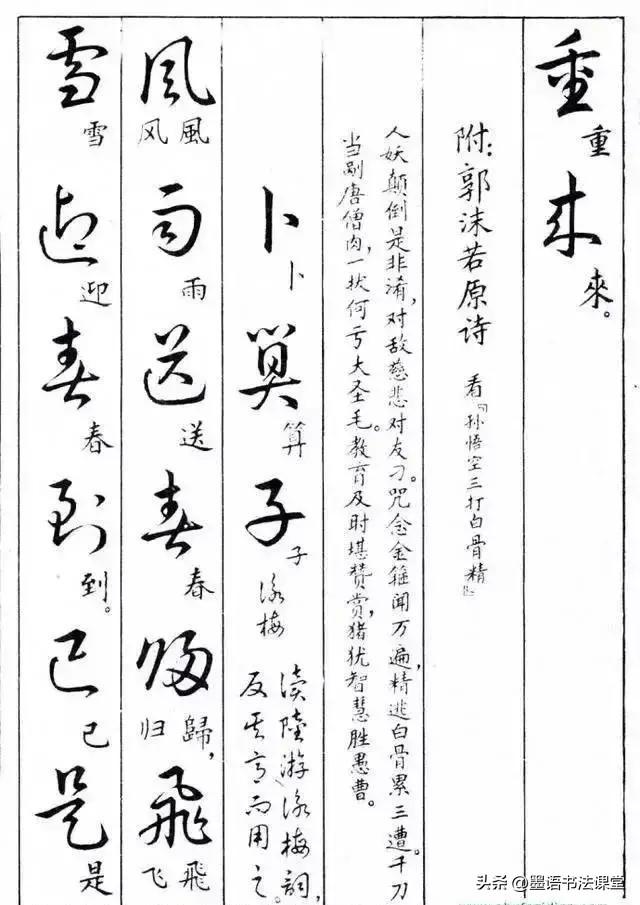 重重来來。
附:郭沫若原诗 看《孙悟空三打白骨精》
人妖颠倒是非淆,对敌慈悲对友刁。咒念金箍闻万遍,精逃白骨累三遭。千刀
当剐唐僧肉,一拔何亏大圣毛。教育及时堪赞赏,猪犹智慧胜愚曹。
卜卜算算子子 咏梅
读陸游咏梅詞,
反其意而用之。
風風风雨雨送送春春归歸,归飛飛飞
雪雪迎迎春春到到。已已是是
头条 @墨语书法课堂